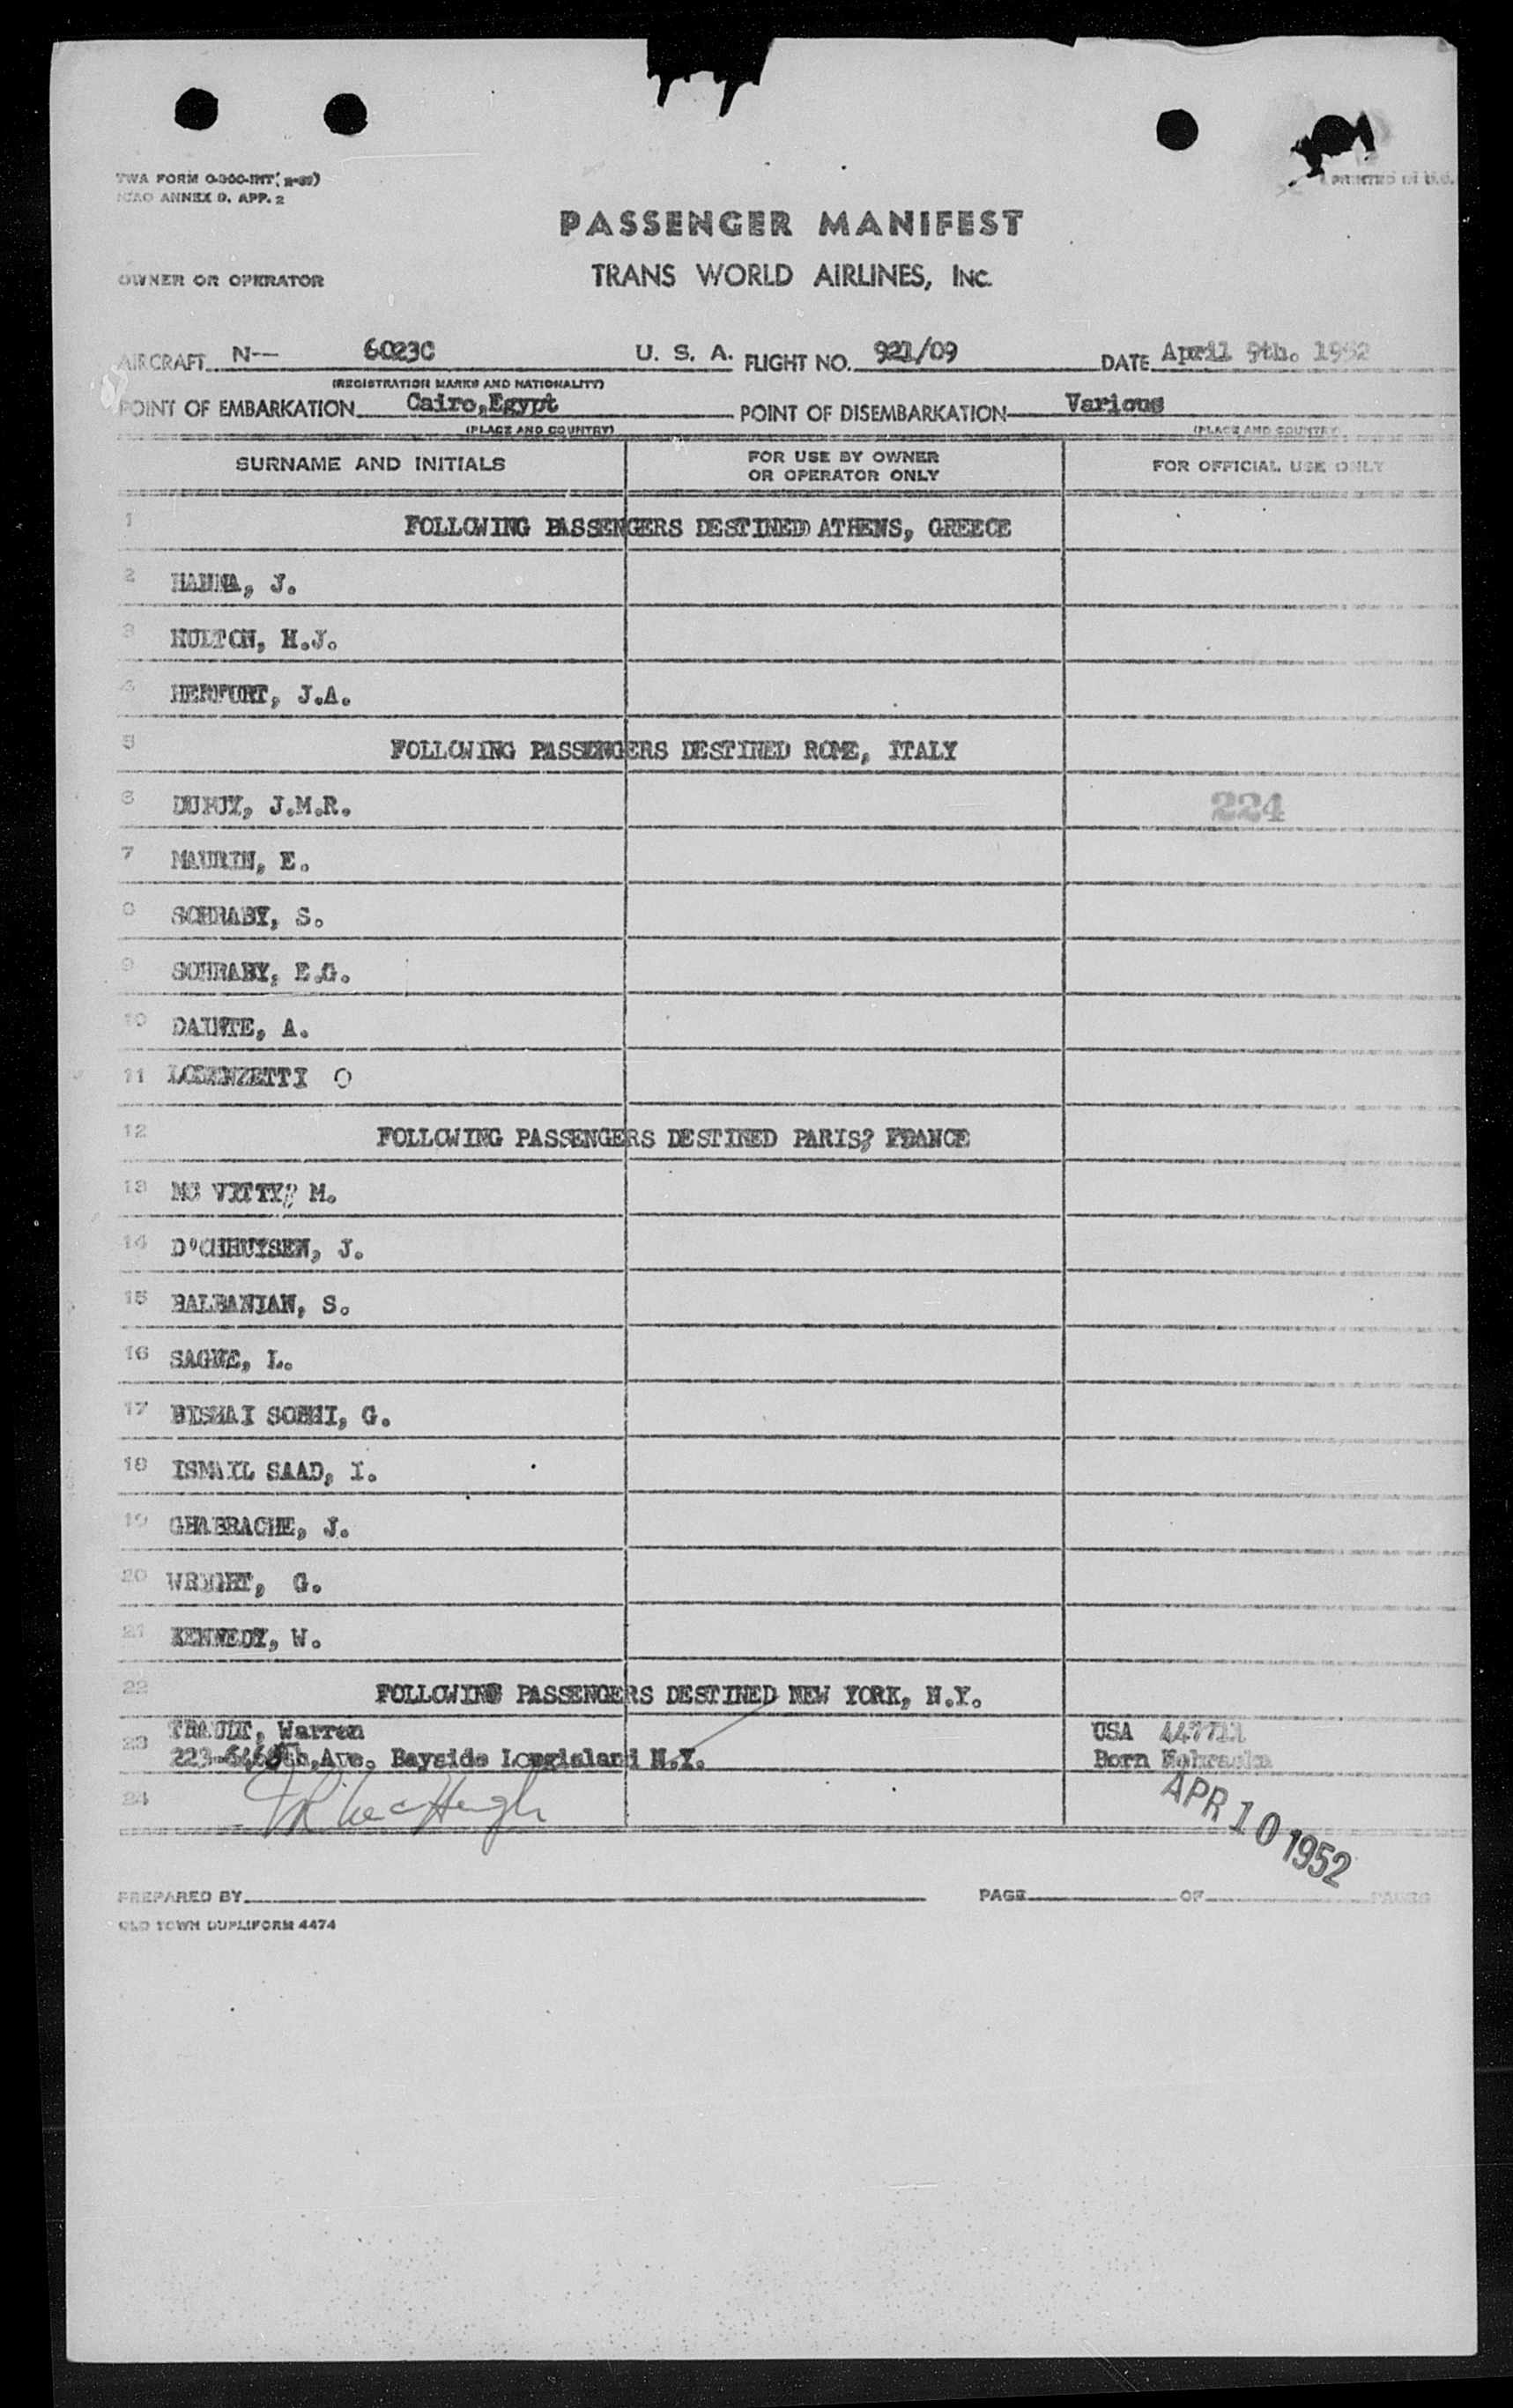 TWA FORM
ICAO ANNEX 9. APP. 2
PRINTED IN U.S.
PASSENGER MANIFEST
OWNER OR OPERATOR
TRANS WORLD AIRLINES, INC.
AIRCRAFT N-- 6023C U. S. A. FLIGHT NO. 921/09 DATE April 9th. 1952
(REGISTRATION MARKS AND NATIONALITY)
POINT OF EMBARKATION Cairo,Egypt POINT OF DISEMBARKATION Various
(PLACE AND COUNTRY) (PLACE AND COUNTRY)
SURNAME AND INITIALS FOR USE BY OWNER OR OPERATOR ONLY FOR OFFICIAL USE ONLY
1 FOLLOWING PASSENGERS DESTINED ATHENS, GREECE
2 HANNA, J.
3 H.J.
4 J.A.
5 FOLLOWING PASSENGERS DESTINED ROME, ITALY
6 DUPUY, J.M.R. 224
7 MAURIN, E.
8 SOHRABY, S.
9 SOHRABY, E.G.
10 A.
11 LORENZETTI O
12 FOLLOWING PASSENGERS DESTINED PARIS? FRANCE
13 MC VITTY? M.
14 J.
15 BALBANIAN, S.
16 L.
17 BISHAI SOBHI, G.
18 ISMAIL SAAD, I.
19 GHABRACHE, J.
20 WRIGHT, G.
21 KENNEDY, W.
22 FOLLOWING PASSENGERS DESTINED NEW YORK, N.Y.
23 Warren USA
Ave. Bayside Longisland N.Y. Born Nebraska
24
APR 10 1952
PREPARED BY PAGE OF PAGES
OLD TOWN DUPLIFORM 4474